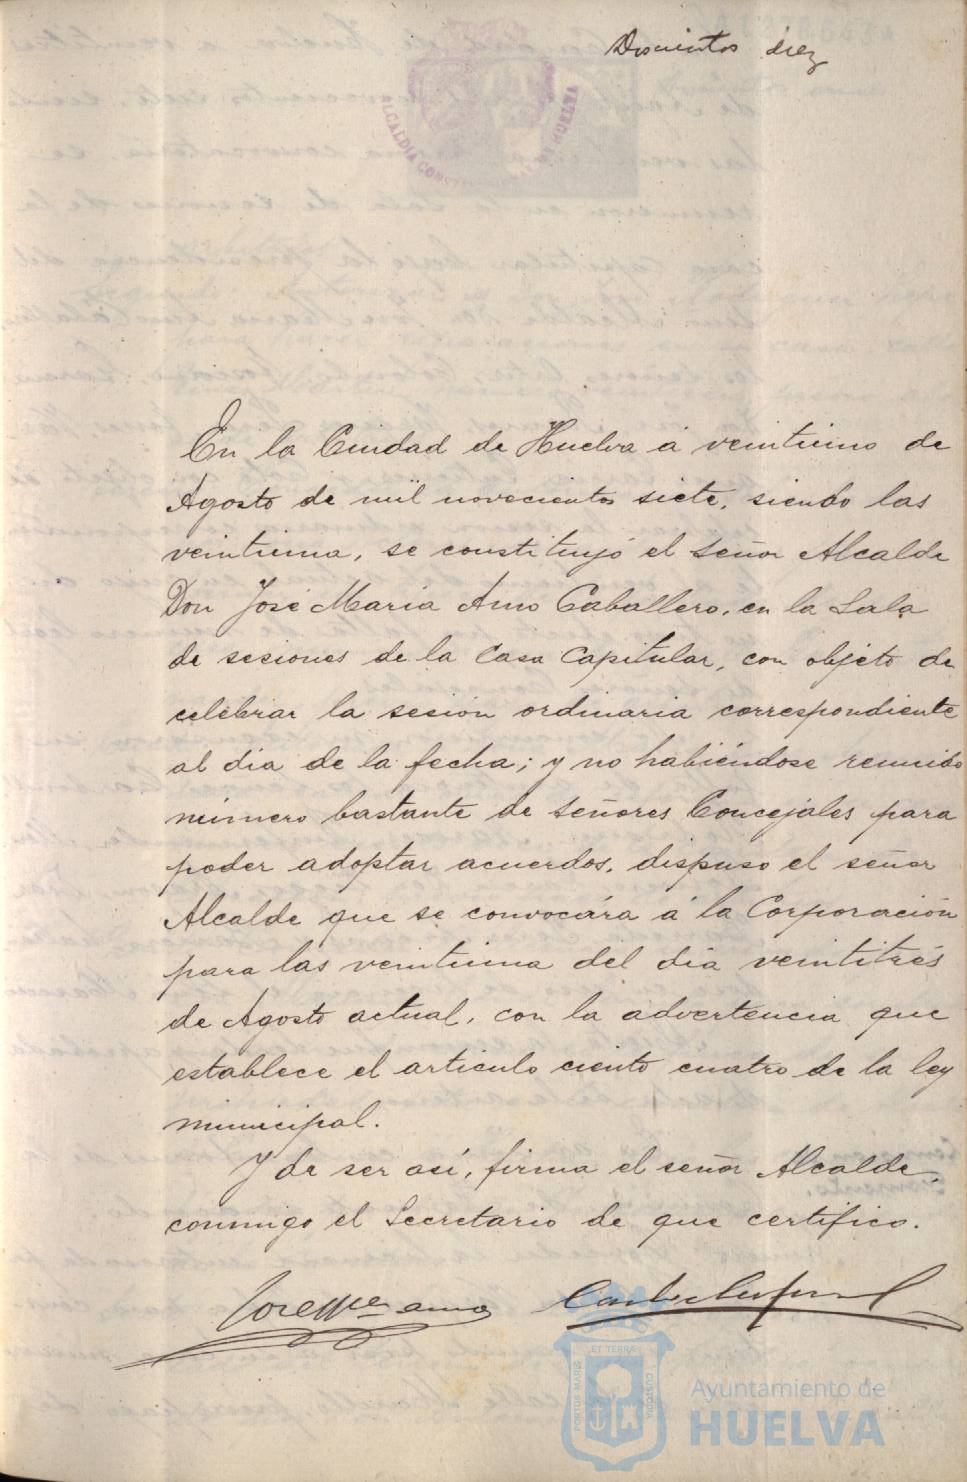 Doscientos diez
ALCALDIA CONSTITUCIONAL DE HUELVA
En la Ciudad de Huelva á veintiuno de
Agosto de mil novecientos siete, siendo las
veintiuna, se constituyó el señor Alcalde
Don José Maria Amo Caballero, en la Sala
de sesiones de la Casa Capitular, con objeto de
celebrar la sesión ordinaria correspondiente
al dia de la fecha; y no habiéndose reunido
número bastante de señores Concejales para
poder adoptar acuerdos, dispuso el señor
Alcalde que se convocára á la Corporación
para las veintiuna del dia veintitrés
de Agosto actual, con la advertencia que
establece el articulo ciento cuatro de la ley
municipal.
Y de ser así, firma el señor Alcalde,
conmigo el Secretario de que certifico.
Jose Mª amo
ET TERRA
PORTUS MARIS
CUSTODIA
Ayuntamiento de
HUELVA